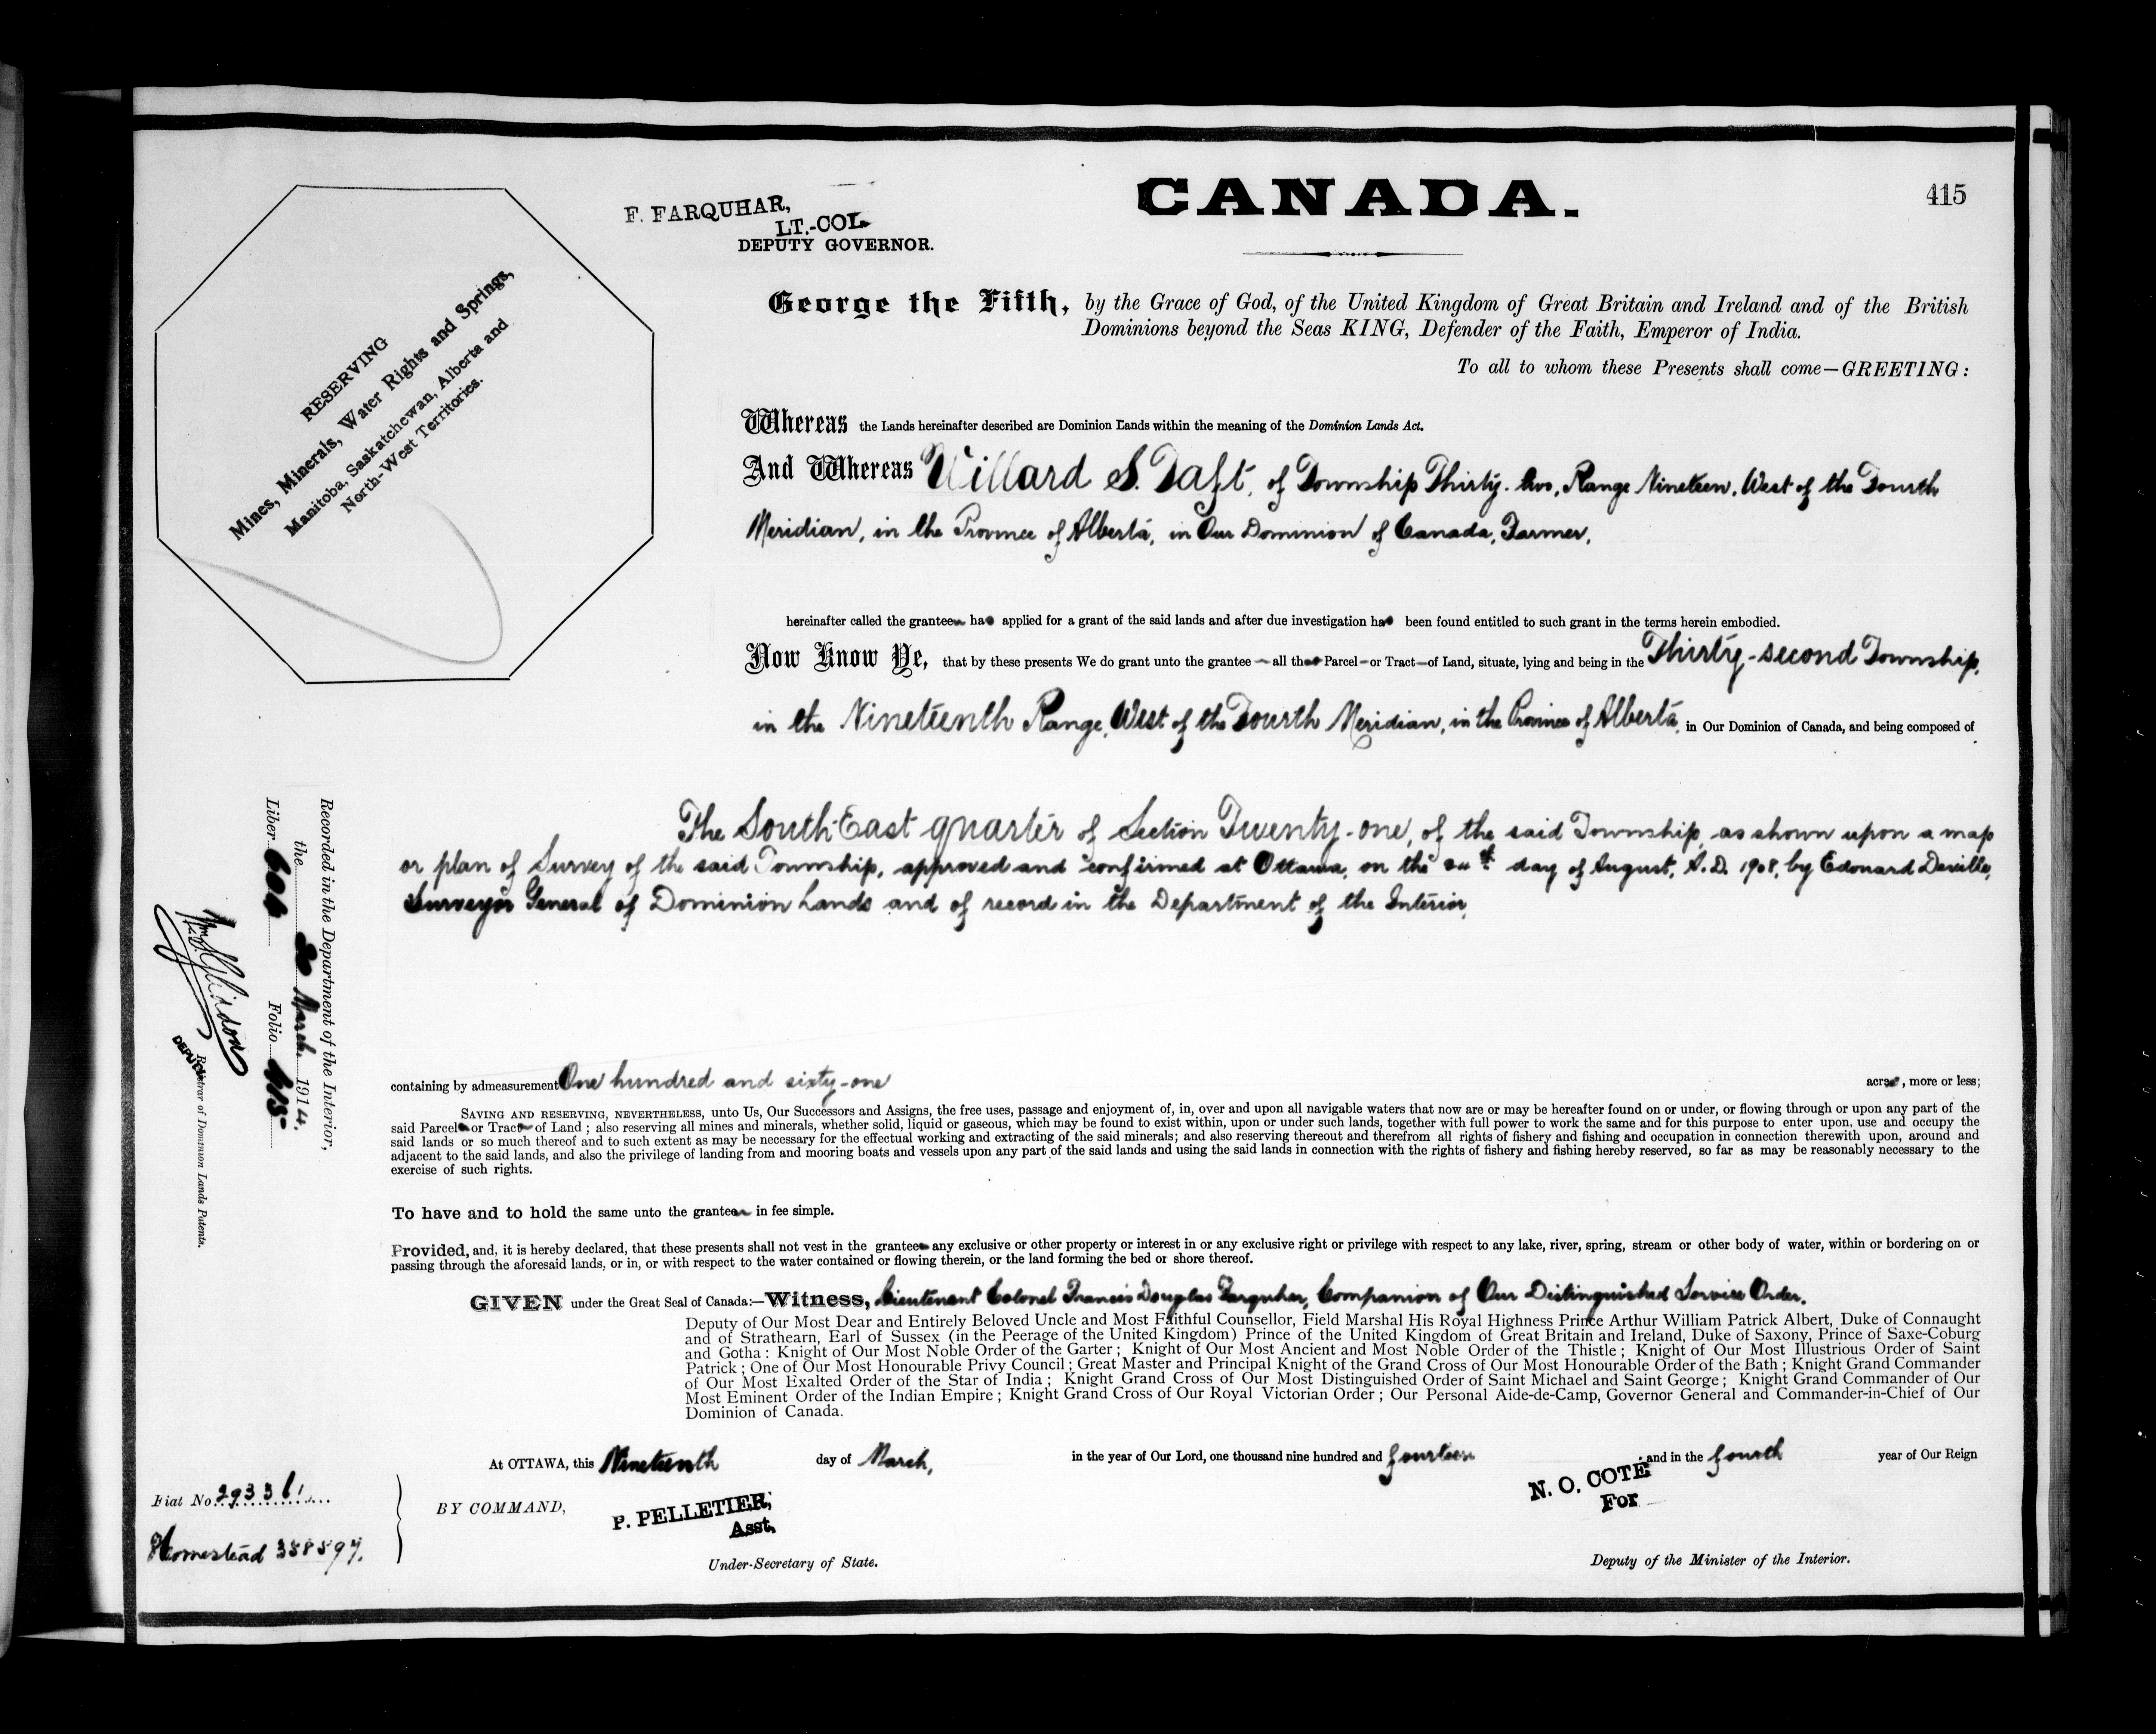 CANADA.
415
F. FARQUHAR,
LT.-COL.
DEPUTY GOVERNOR.
RESERVING
Mines, Minerals, Water Rights and Springs,
Manitoba, Saskatchewan, Alberta and
North-West Territories.
George the Fifth, by the Grace of God, of the United Kingdom of Great Britain and Ireland and of the British
Dominions beyond the Seas KING, Defender of the Faith, Emperor of India.
To all to whom these Presents shall come—GREETING:
Whereas the Lands hereinafter described are Dominion Lands within the meaning of the Dominion Lands Act.
And Whereas Willard S. Taft, of Township Thirty-two, Range Nineteen, West of the Fourth
Meridian, in the Province of Alberta, in Our Dominion of Canada, Farmer,
hereinafter called the grantee has applied for a grant of the said lands and after due investigation has been found entitled to such grant in the terms herein embodied.
Now Know Ye, that by these presents We do grant unto the grantee all that Parcel or Tract of Land, situate, lying and being in the Thirty-second Township,
in the Nineteenth Range, West of the Fourth Meridian, in the Province of Alberta, in Our Dominion of Canada, and being composed of
The South East quarter of Section Twenty-one, of the said Township, as shown upon a map
or plan of Survey of the said Township, approved and confirmed at Ottawa, on the day of August, A.D. 1908, by Edouard Deville,
Surveyor General of Dominion Lands and of record in the Department of the Interior,
containing by admeasurement One hundred and sixty-one acres, more or less;
SAVING AND RESERVING, NEVERTHELESS, unto Us, Our Successors and Assigns, the free uses, passage and enjoyment of, in, over and upon all navigable waters that now are or may be hereafter found on or under, or flowing through or upon any part of the
said Parcel or Tract of Land; also reserving all mines and minerals, whether solid, liquid or gaseous, which may be found to exist within, upon or under such lands, together with full power to work the same and for this purpose to enter upon, use and occupy the
said lands or so much thereof and to such extent as may be necessary for the effectual working and extracting of the said minerals; and also reserving thereout and therefrom all rights of fishery and fishing and occupation in connection therewith upon, around and
adjacent to the said lands, and also the privilege of landing from and mooring boats and vessels upon any part of the said lands and using the said lands in connection with the rights of fishery and fishing hereby reserved, so far as may be reasonably necessary to the
exercise of such rights.
To have and to hold the same unto the grantee in fee simple.
Provided, and, it is hereby declared, that these presents shall not vest in the grantee any exclusive or other property or interest in or any exclusive right or privilege with respect to any lake, river, spring, stream or other body of water, within or bordering on or
passing through the aforesaid lands, or in, or with respect to the water contained or flowing therein, or the land forming the bed or shore thereof.
GIVEN under the Great Seal of Canada:—Witness, Lieutenant Colonel Francis Douglas Farquhar, Companion of Our Distinguished Service Order,
Deputy of Our Most Dear and Entirely Beloved Uncle and Most Faithful Counsellor, Field Marshal His Royal Highness Prince Arthur William Patrick Albert, Duke of Connaught
and of Strathearn, Earl of Sussex (in the Peerage of the United Kingdom) Prince of the United Kingdom of Great Britain and Ireland, Duke of Saxony, Prince of Saxe-Coburg
and Gotha: Knight of Our Most Noble Order of the Garter; Knight of Our Most Ancient and Most Noble Order of the Thistle; Knight of Our Most Illustrious Order of Saint
Patrick; One of Our Most Honourable Privy Council; Great Master and Principal Knight of the Grand Cross of Our Most Honourable Order of the Bath; Knight Grand Commander
of Our Most Exalted Order of the Star of India; Knight Grand Cross of Our Most Distinguished Order of Saint Michael and Saint George; Knight Grand Commander of Our
Most Eminent Order of the Indian Empire; Knight Grand Cross of Our Royal Victorian Order; Our Personal Aide-de-Camp, Governor General and Commander-in-Chief of Our
Dominion of Canada.
At OTTAWA, this Nineteenth day of March, in the year of Our Lord, one thousand nine hundred and fourteen and in the fourth year of Our Reign
BY COMMAND,
P. PELLETIER,
Asst.
Under-Secretary of State.
N. O. COTE
For
Deputy of the Minister of the Interior.
Recorded in the Department of the Interior,
the March 1914,
Liber 606 Folio 415
DEPUTY Registrar of Dominion Lands Patents.
Fiat No 293361
Homestead 388597.